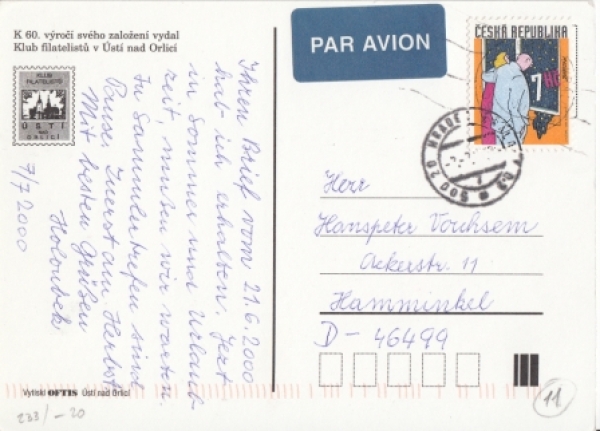 K 60. výročí svého založení vydal
Klub filatelistů v Ústí nad Orlicí
KLUB
FILATELISTŮ
ÚSTÍ
NAD
ORLICÍ
PAR AVION
ČESKÁ REPUBLIKA
7 Kč
500 20 HRADEC
Ihren Brief vom 21.6.2000
hab- ich erhalten. Jetzt
in Sommer und Urlaub-
zeit, müssen wir warten.
In Sammlertrefen sind
Pause. Zuerst am Herbst
Mit besten Grüßen
Holoubek
7/7 2000
Herr
Hanspeter
Ackerstr. 11
Hamminkel
D-46499
Vytiskl OFTIS Ústí nad Orlicí
233/-20
11